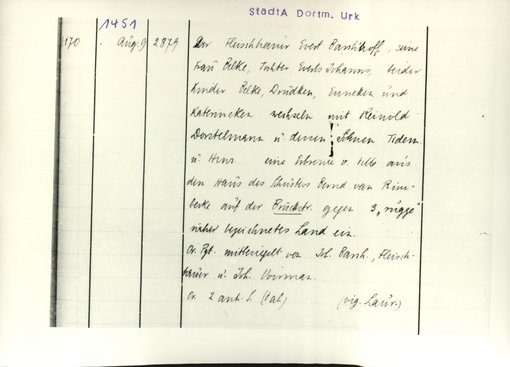 StadtA Dortm. Urk
1451
170 Aug. 9 2879 Der Fleischhauer Evert Panhoff, seine
Frau Elke, Tochter Everts Johanns, beider
Kinder Elke, Drudken, Enneken und
Katerineken wechseln mit Reinold
Dorstelmann u. dessen Söhnen Tideman
u. Hans eine Erbrente v. aus
dem Haus des Bernd van Rim-
berke auf der Brückstr. gegen 3 „rügge"
näher bezeichnetes Land ein.
Or. Pgt. mitbesiegelt von Joh. Panh., Fleisch-
hauer u. Joh.
Or. 2 anh. S. (Fal) (vig. Laur.)